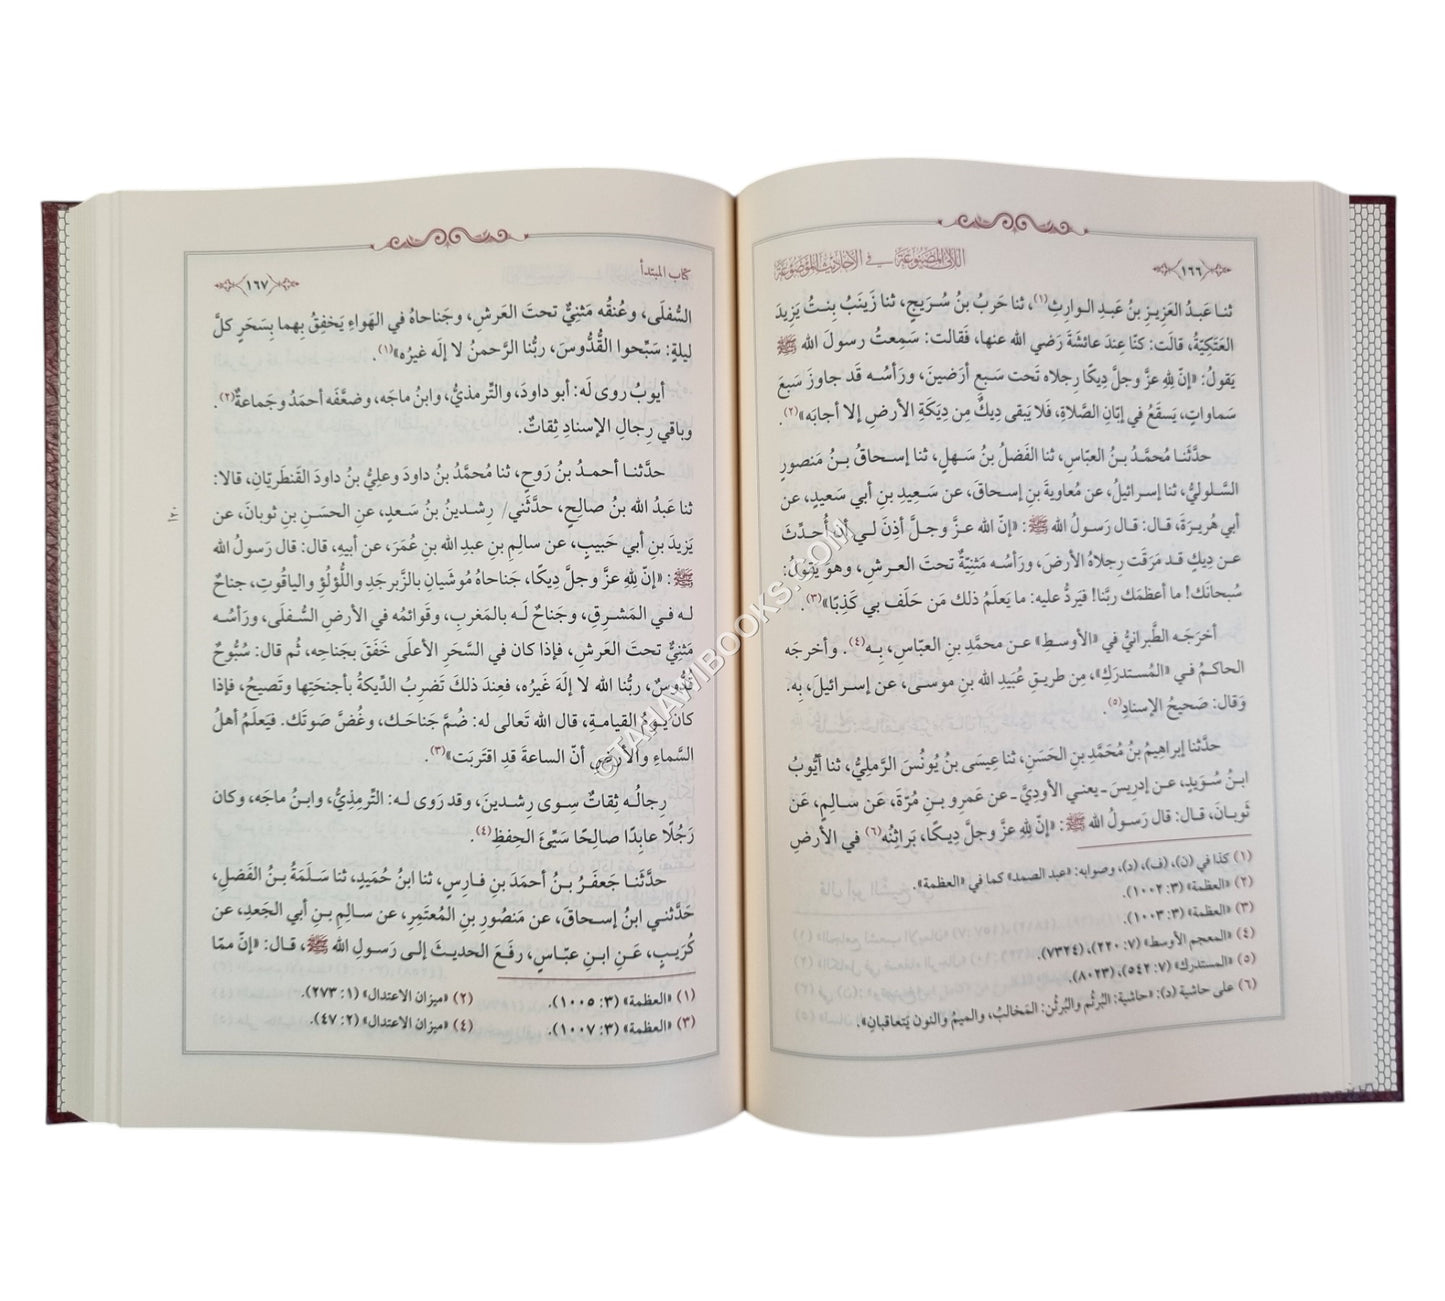 اللآلئ المصنوعة في الأحاديث الموضوعة
١٦٦
ثنا عَبدُ العَزيزِ بنُ عَبدِ الوارِثِ(١)، ثنا حَربُ بنُ سُرَيجٍ، ثنا زَينَبُ بِنتُ يَزيدَ
العَتَكِيَّةُ، قالَت: كنّا عِندَ عائشَةَ رَضي الله عنها، فَقالَت: سَمِعتُ رسولَ الله ﷺ
يَقولُ: «إنّ للهِ عزَّ وجلَّ دِيكًا رِجلاه تَحت سَبعِ أرَضينَ، ورَأسُه قَد جاوزَ سَبعَ
سَماواتٍ، يَسقَعُ في إبّانِ الصَّلاةِ، فَلا يَبقى دِيكٌ مِن دِيَكَةِ الأرضِ إلا أجابَه»(٢).
حدَّثَنا مُحمَّدُ بنُ العبّاسِ، ثنا الفَضلُ بنُ سَهلٍ، ثنا إسحاقُ بنُ مَنصورٍ
السَّلوليُّ، ثنا إسرائيلُ، عن مُعاويةَ بنِ إسحاقَ، عن سَعِيدِ بنِ أبي سَعيدٍ، عن
أبي هُريرَةَ، قال: قال رَسولُ اللهِ ﷺ: «إنّ الله عزَّ وجلَّ أذِنَ لي أن أُحدِّثَ
عن دِيكٍ قد مَرَقَت رِجلاهُ الأرضَ، ورَأسُه مَثنِيَّةٌ تحتَ العرشِ، وهو يَقولُ:
سُبحانَك! ما أعظمَك ربَّنا! فيَردُّ عليه: ما يَعلَمُ ذلك مَن حَلَف بي كَذِبًا»(٣).
أخرَجَه الطَّبرانيُّ في «الأوسطِ» عن محمَّدِ بنِ العبّاسِ، بِه(٤). وأخرجَه
الحاكمُ في «المُستدرَكِ»، مِن طريقِ عُبَيدِ الله بنِ موسى، عن إسرائيلَ، بِه.
وَقال: صَحيحُ الإسنادِ(٥).
حدَّثنا إبراهيمُ بنُ مُحَمَّدِ بنِ الحَسَنِ، ثنا عِيسَى بنُ يُونُسَ الرَّمليُّ، ثنا أيّوبُ
ابنُ سُوَيدٍ، عن إدريسَ ـ يعني الأودِيَّ ـ عن عَمرِو بنِ مُرّةَ، عَن سالِمٍ، عَن
ثَوبانَ، قال: قال رَسولُ الله ﷺ: «إنّ للهِ عزَّ وجلَّ دِيكًا، بَراثِنُه(٦) في الأرضِ
(١) كذا في (ن)، (ف)، (د)، وصوابه: «عبد الصمد» كما في «العظمة».
(٢) «العظمة» (٣: ١٠٠٢).
(٣) «العظمة» (٣: ١٠٠٣).
(٤) «المعجم الأوسط» (٧: ٢٢٠)، (٧٣٢٤).
(٥) «المستدرك» (٧: ٥٤٢)، (٨٠٢٣).
(٦) على حاشية (د): «حاشية: البُرثُم والبُرثُن: المَخالبُ، والميمُ والنون يَتعاقبانِ».
كتاب المبتدأ
١٦٧
السُّفلَى، وعُنقُه مَثنِيٌّ تحتَ العَرشِ، وجَناحاهُ في الهَواءِ يَخفِقُ بِهِما بِسَحَرٍ كلَّ
ليلةٍ: سَبِّحوا القُدُّوسَ، ربُّنا الرَّحمنُ لا إلَه غيرُه»(١).
أيوبُ روى لَه: أبو داودَ، والتِّرمذيُّ، وابنُ ماجَه، وضعَّفَه أحمَدُ وجَماعةٌ(٢).
وباقي رِجالِ الإسنادِ ثِقاتٌ.
حدَّثنا أحمدُ بنُ رَوحٍ، ثنا مُحمَّدُ بنُ داودَ وعليُّ بنُ داودَ القَنطَريّانِ، قالا:
ثنا عَبدُ الله بنُ صالِحٍ، حدَّثَني/ رِشدينُ بنُ سَعدٍ، عنِ الحسَنِ بنِ ثَوبانَ، عن
يَزيدَ بنِ أبي حَبيبٍ، عن سالمِ بنِ عبدِ الله بنِ عُمَرَ، عن أبيهِ، قال: قال رَسولُ الله
ﷺ: «إنّ للهِ عزَّ وجلَّ دِيكًا، جَناحاهُ مُوشَيانِ بالزَّبرجَدِ واللُّؤلُؤِ والياقُوتِ، جناحٌ
له في المَشرِقِ، وجَناحٌ لَه بالمَغربِ، وقَوائمُه في الأرضِ السُّفلَى، ورَأسُه
مَثنِيٌّ تحتَ العَرشِ، فإذا كان في السَّحَرِ الأعلَى خَفَقَ بجَناحِه، ثُم قال: سُبُّوحٌ
قُدُّوسٌ، ربُّنا الله لا إلَهَ غَيرُه، فعِندَ ذلكَ تَضرِبُ الدِّيكةُ بأجنحَتِها وتَصيحُ، فإذا
كان يَومُ القيامةِ، قال الله تَعالى له: ضُمَّ جَناحَك، وغُضَّ صَوتَك. فيَعلَمُ أهلُ
السَّماءِ والأرضِ أنّ الساعةَ قدِ اقتَربَت»(٣).
رِجالُه ثِقاتٌ سِوى رِشدينَ، وقد رَوى له: التِّرمِذيُّ، وابنُ ماجَه، وكان
رَجُلًا عابِدًا صالِحًا سَيِّئَ الحِفظِ(٤).
حدَّثَنا جَعفَرُ بنُ أحمَدَ بنِ فارِسٍ، ثنا ابنُ حُمَيدٍ، ثنا سَلَمَةُ بنُ الفَضلِ،
حَدَّثني ابنُ إسحاقَ، عن مَنصُورِ بنِ المُعتَمِرِ، عن سالِمِ بنِ أبي الجَعدِ، عن
كُرَيبٍ، عَنِ ابنِ عبّاسٍ، رفَعَ الحديثَ إلى رَسولِ الله ﷺ، قال: «إنّ ممّا
(١) «العظمة» (٣: ١٠٠٥).
(٢) «ميزان الاعتدال» (١: ٢٧٣).
(٣) «العظمة» (٣: ١٠٠٧).
(٤) «ميزان الاعتدال» (٢: ٤٧).
©TAHAWIBOOKS.COM